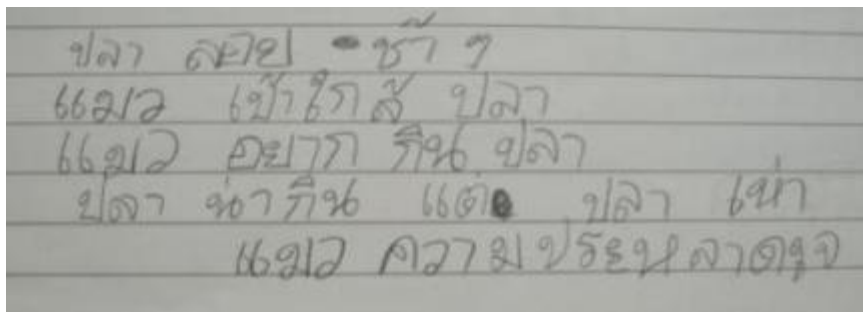 ปลา ลอย ช้า ๆ
แมว เข้าใกล้ ปลา
แมว อยาก กิน ปลา
ปลา น่ากิน แต่ ปลา เน่า
แมว ความประหลาดใจ